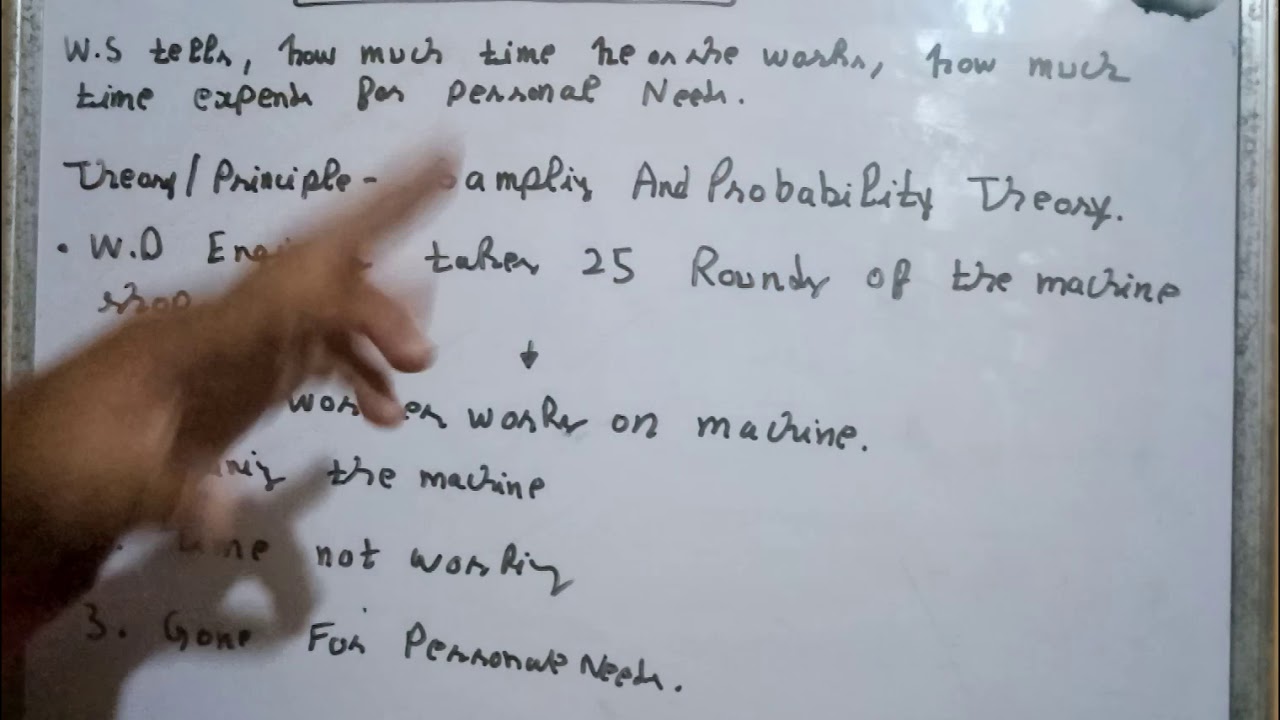 W.S tells, how much time he or she works, how much
time expends for Personal Needs.
Theory/Principle- Sampling And Probability Theory.
• W.D takes 25 Rounds of the machine
shop
worker works on machine.
the machine
not working
3. Gone For Personal Needs.